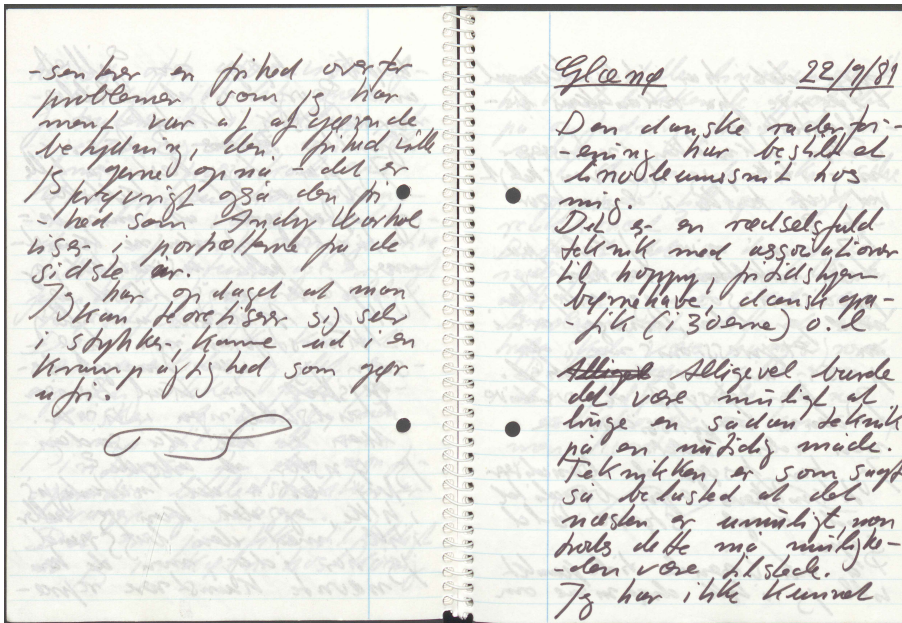 -sen ker en frihed overfor
problemer som jeg har
ment var af afgørende
betydning, den frihed ville
jeg gerne opnå - det er
i øvrigt også den fri
-hed som Andy Warhol
viser i portrætterne fra de
sidste år.
Jeg har opdaget at man
kan teoretisere sig selv
i stykker, komme ud i en
krampagtighed som gør
ufri.
Glænø 22/9/81
Den danske raderfor-
-ening har bestilt et
linoleumssnit hos
mig.
Det er en rædselsfuld
teknik med associationer
til hobby, fritidshjem
børnehave, dansk gra-
-fik (i 30erne) o.l
Alligevel burde
det være muligt at
bruge en sådan teknik
på en nutidig måde.
Teknikken er som sagt
så belastet at det
næsten er umuligt, men
trods dette må mulighe-
-den være tilstede.
Jeg har ikke kunnet